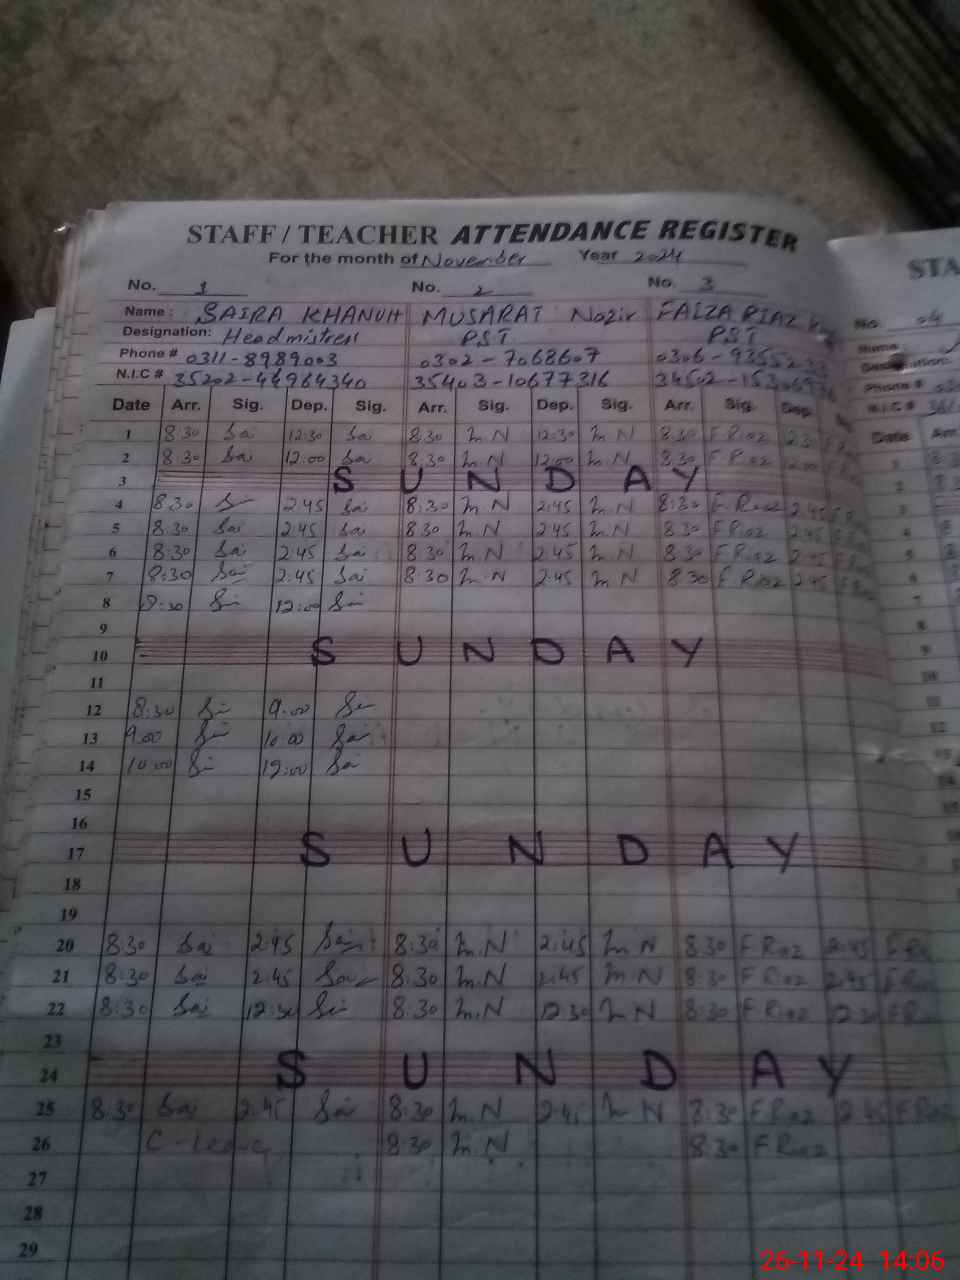 STAFF / TEACHER ATTENDANCE REGISTER
For the month of November Year 2024
No. 1 No. 2 No. 3
Name: SAIRA KHANUM MUSARAT Nazir FAIZA RIAZ
Designation: Headmistress PST PST
Phone # 0311-8989003 0302-7068607 0306-93552
N.I.C # 35202-44964340 35403-10677316 34502-1530
Date Arr. Sig. Dep. Sig. Arr. Sig. Dep. Sig. Arr. Sig. Dep.
1 8:30 Sai 12:30 Sai 8:30 M.N 12:30 M N 8:30 F Riaz
2 8:30 Sai 12:00 Sai 8:30 M.N 12:00 M N 8:30 F Riaz
3 SUNDAY
4 8:30 2:45 Sai 8:30 M N 2:45 M N 8:30 F Riaz 2:45
5 8:30 Sai 2:45 Sai 8:30 M.N 2:45 M N 8:30 F Riaz 2:45
6 8:30 Sai 2:45 Sai 8:30 M.N 2:45 M N 8:30 F Riaz 2:45
7 8:30 Sai 2:45 Sai 8:30 M.N 2:45 M N 8:30 F Riaz 2:45
8 12:00
9
10 SUNDAY
11
12 8:30 9:00
13 9:00 10:00
14 10:00
15
16
17 SUNDAY
18
19
20 8:30 Sai 2:45 8:30 M.N 2:45 M N 8:30 F Riaz 2:45
21 8:30 Sai 2:45 8:30 M.N 2:45 M N 8:30 F Riaz 2:45
22 8:30 Sai 12:30 8:30 M.N 12:30 M N 8:30 F Riaz
23
24 SUNDAY
25 8:30 Sai 2:45 Sai 8:30 M.N 2:45 M N 8:30 F Riaz 2:45 F Riaz
26 C-Leave 8:30 M.N 8:30 F Riaz
27
28
29
STA
No. 04
Phone #
N.I.C #
Date Arr
26-11-24 14:06